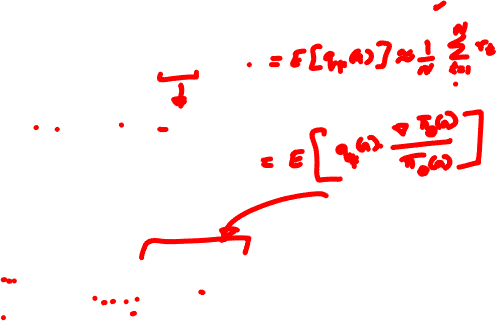 = E[q_π(a)] ≈ 1/N Σ_{i=1}^{N} r_i
= E[q_π(a) · ∇π_θ(a) / π_θ(a)]